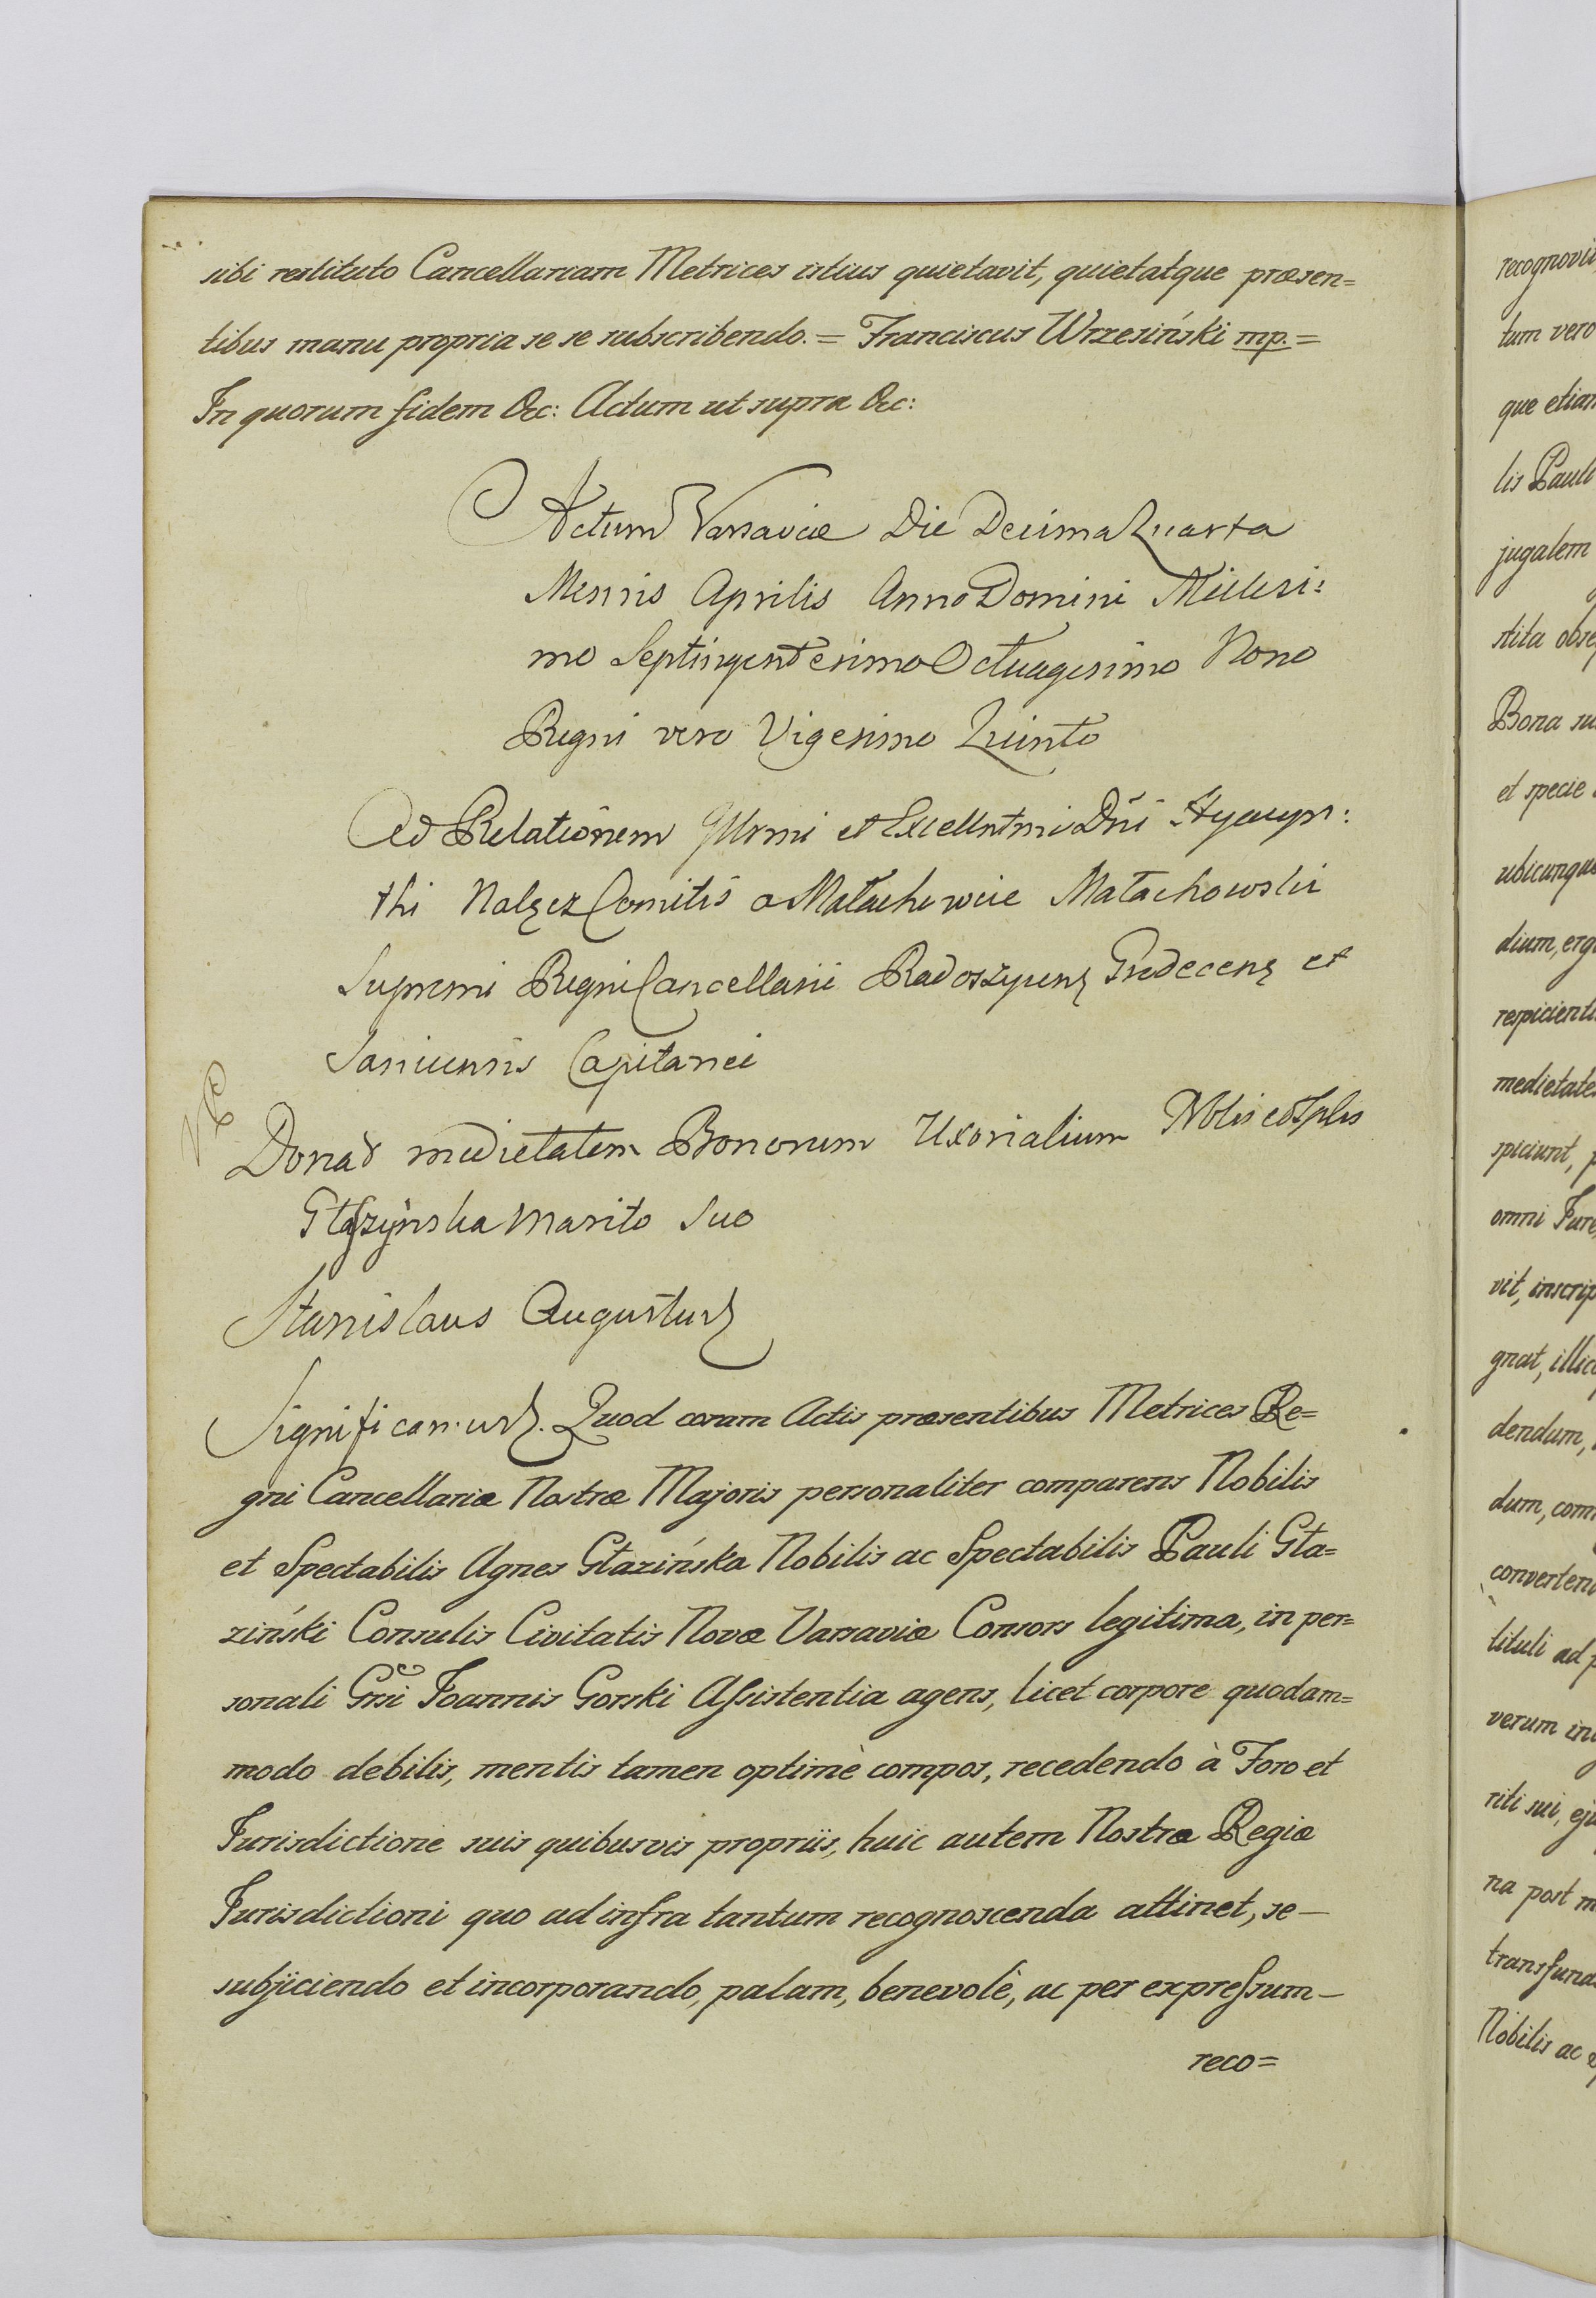 sibi restituto Cancellariam Metrices istius quietavit, quietatque præsen=
tibus manu propria se se subscribendo. = Franciscus Wrzesiński mp. =
In quorum fidem &c: Actum ut supra &c:
Actum Varsaviæ Die Decima Quarta
Mensis Aprilis Anno Domini Millesi:
mo Septingentesimo Octuagesimo Nono
Regni vero Vigesimo Quinto
Ad Relationem Illrmi et Excellntmi Dñi Hyacyn:
thi Nalęcz Comitis a Małachowice Małachowski
Supremi Regni Cancellarii Radoszycen Grodecen et
Saniucensis Capitanei
Donad medietatem Bonorum Uxorialium Nblis et Splis
Głaszyńska Marito Suo
Stanislaus Augustus
Significamus. Quod coram Actis præsentibus Metrices Re=
gni Cancellariæ Nostræ Majoris personaliter comparens Nobilis
et Spectabilis Agnes Głazińska Nobilis ac Spectabilis Pauli Gła=
ziński Consulis Civitatis Novæ Varsaviæ Consors legitima, in per=
sonali Grsi Joannis Gorski Assistentia agens, licet corpore quodam=
modo debilis, mentis tamen optimè compos, recedendo à Foro et
Jurisdictione suis quibusvis propriis, huic autem Nostræ Regiæ
Jurisdictioni quo ad infra tantum recognoscenda attinet, se —
subjiciendo et incorporando, palam, benevolè, ac per expressum —
reco=
recognovit
tum vero
que etiam
lis Pauli
jugalem
stita obse
Bona su
et specie
ubicunque
dium, erga
respicienti
medietate
spiciunt, p
omni Jure,
vit, inscrip
gnat, illico
dendum,
dum, com
converten
tituli ad p
verum in
riti sui, eju
na post m
transfund
Nobilis ac